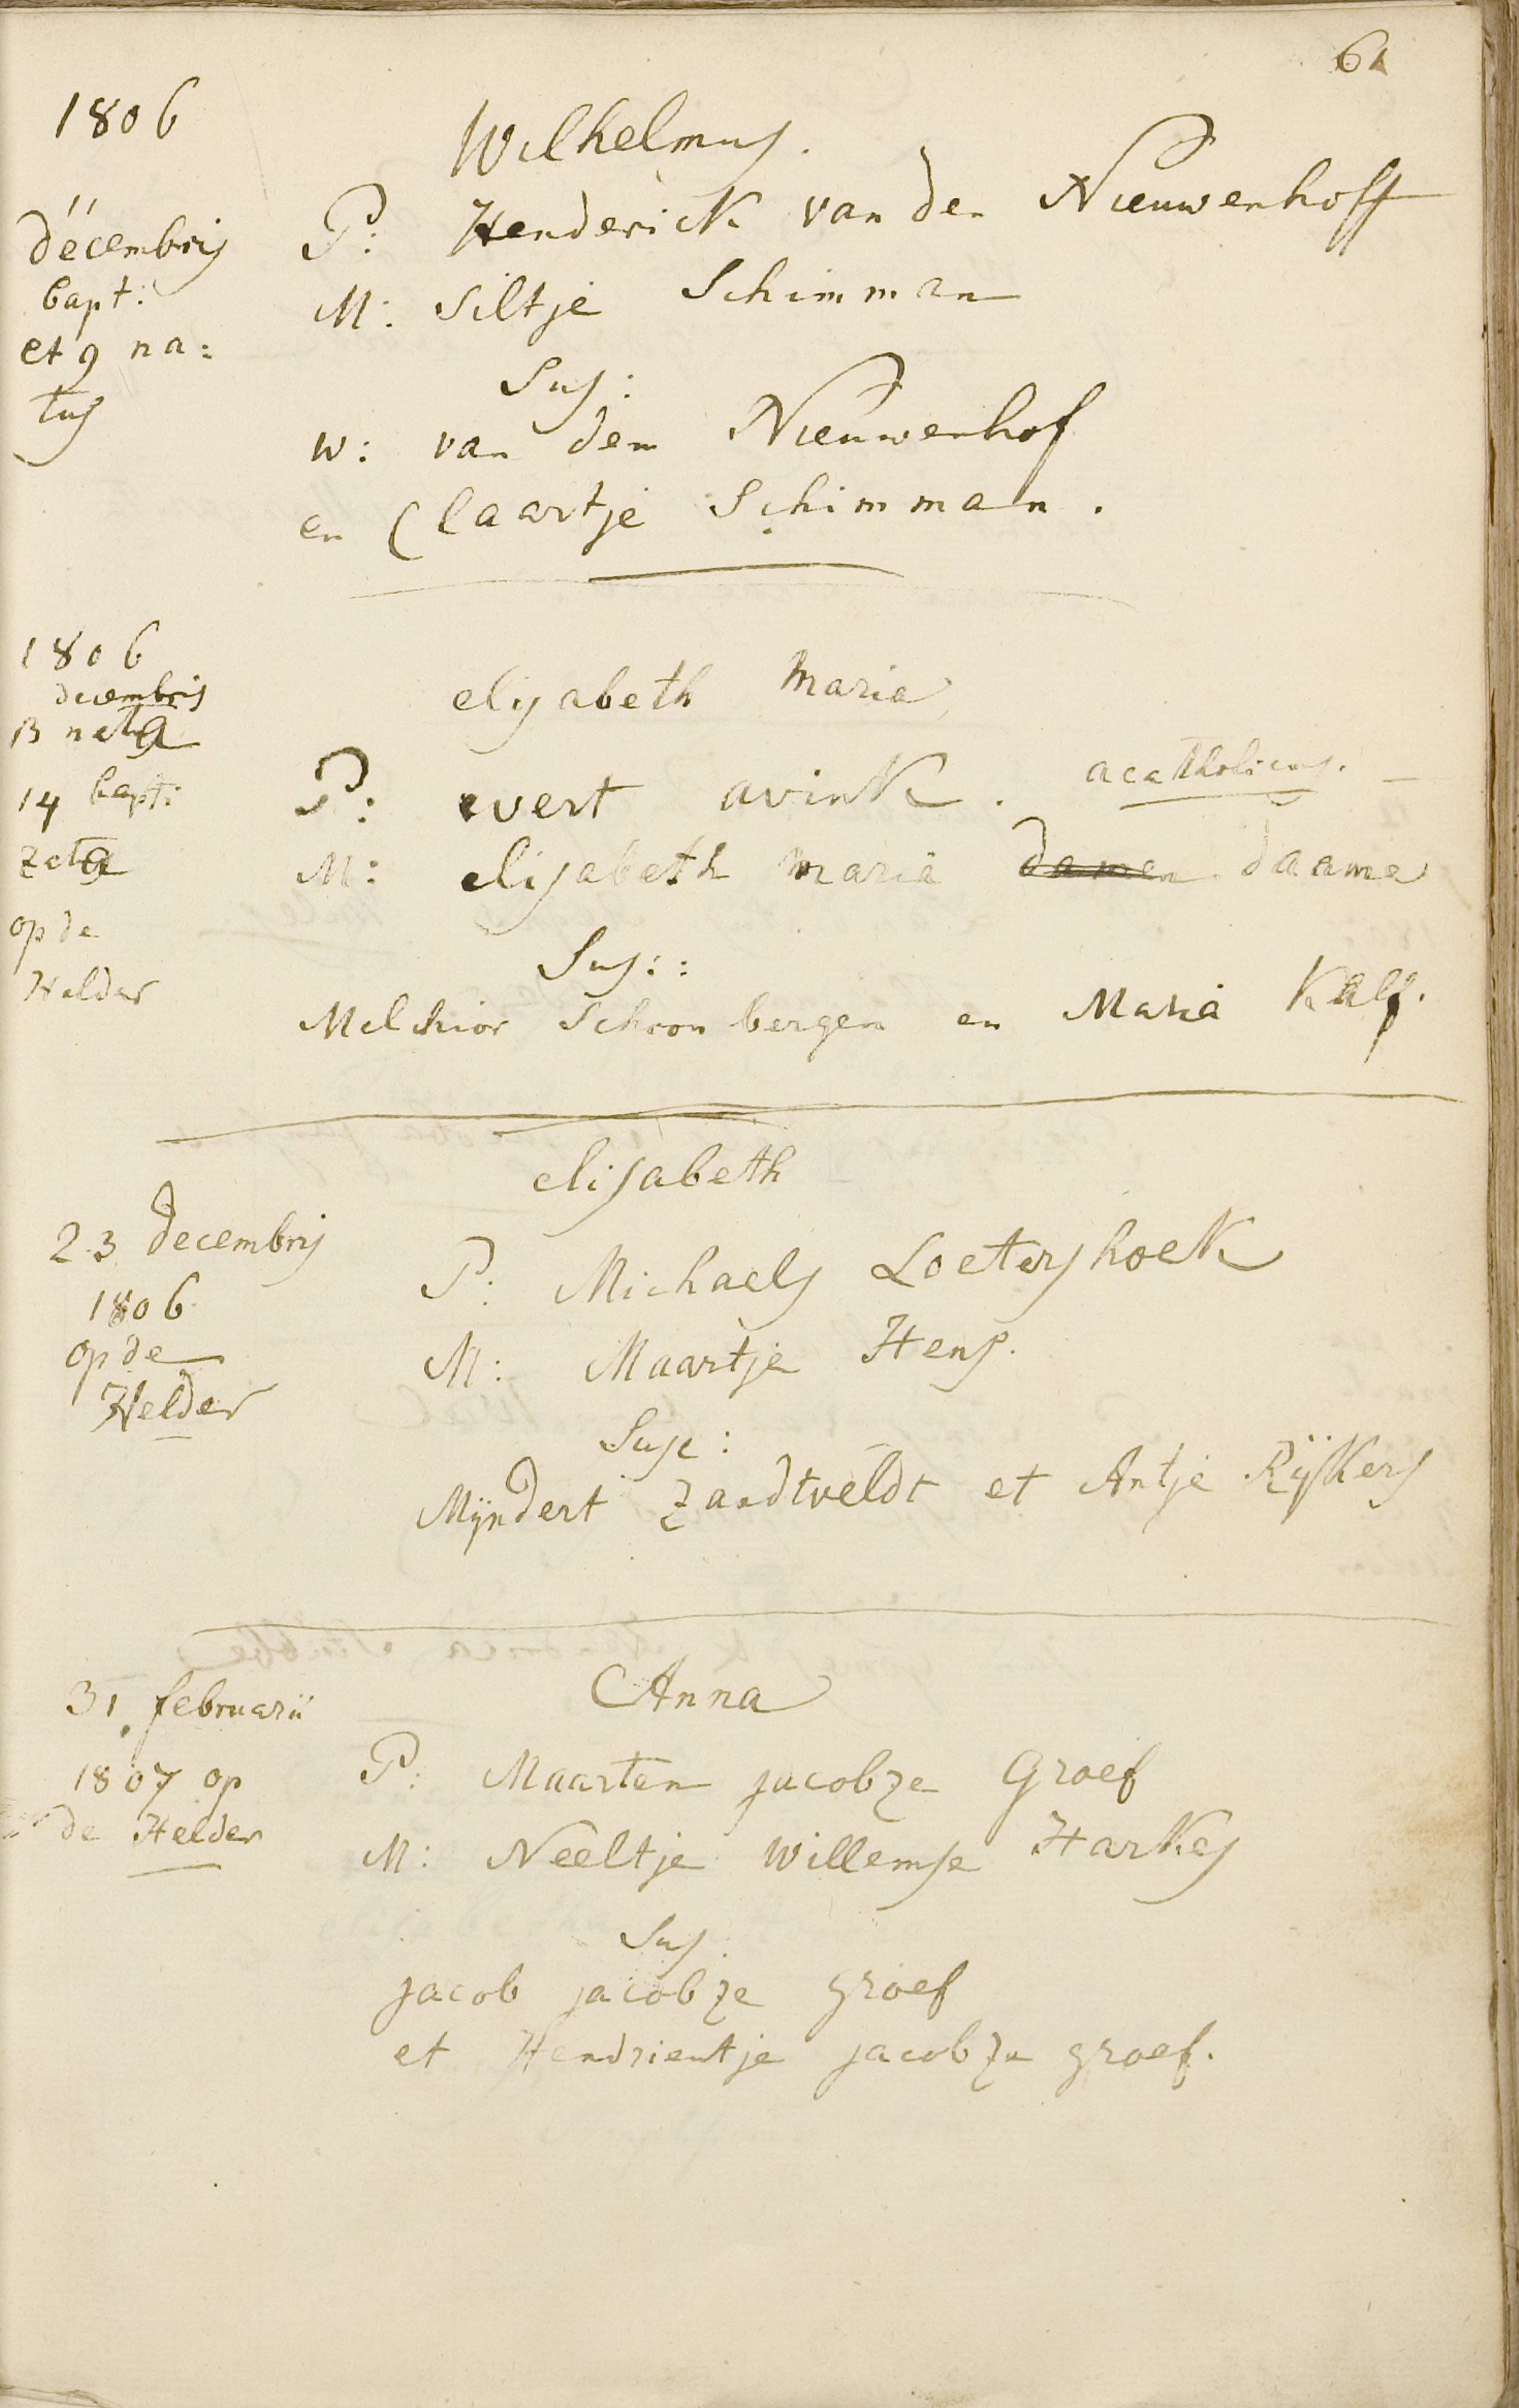 61
1806
Wilhelmus.
11
decembris
bapt:
et 9 na=
tus
P: Henderick van den Nieuwenhoff
M: Siltje Schimman
Sus:
W: van dem Nieuwenhof
en Claartje Schimman.
1806
decembris
13 nata
14 bapt:
zata
op de
Helder
elisabeth Maria
P: evert avink. acatholicus.
M: elisabeth maria damen daame
Sus::
Melchior Schoonbergen en Maria Kalf.
23 decembris
1806
op de
Helder
elisabeth
P: Michaels Loetershoek
M: Maartje Hens.
Suse:
Mijndert Zandtveldt et Antje Rijkers
31 februarii
1807 op
de Helder
Anna
P: Maarten jacobze Groef
M: Neeltje Willemse Harkes
Sus.
jacob jacobze groef
et Hendrientje jacobze groef.